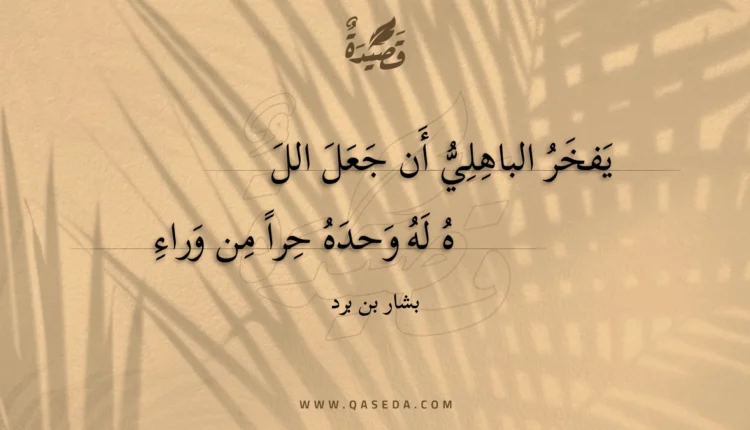 قَصِيدَةٌ
يَفخَرُ الباهِلِيُّ أَن جَعَلَ اللَ
هُ لَهُ وَحدَهُ حِراً مِن وَراءِ
بشار بن برد
WWW.QASEDA.COM